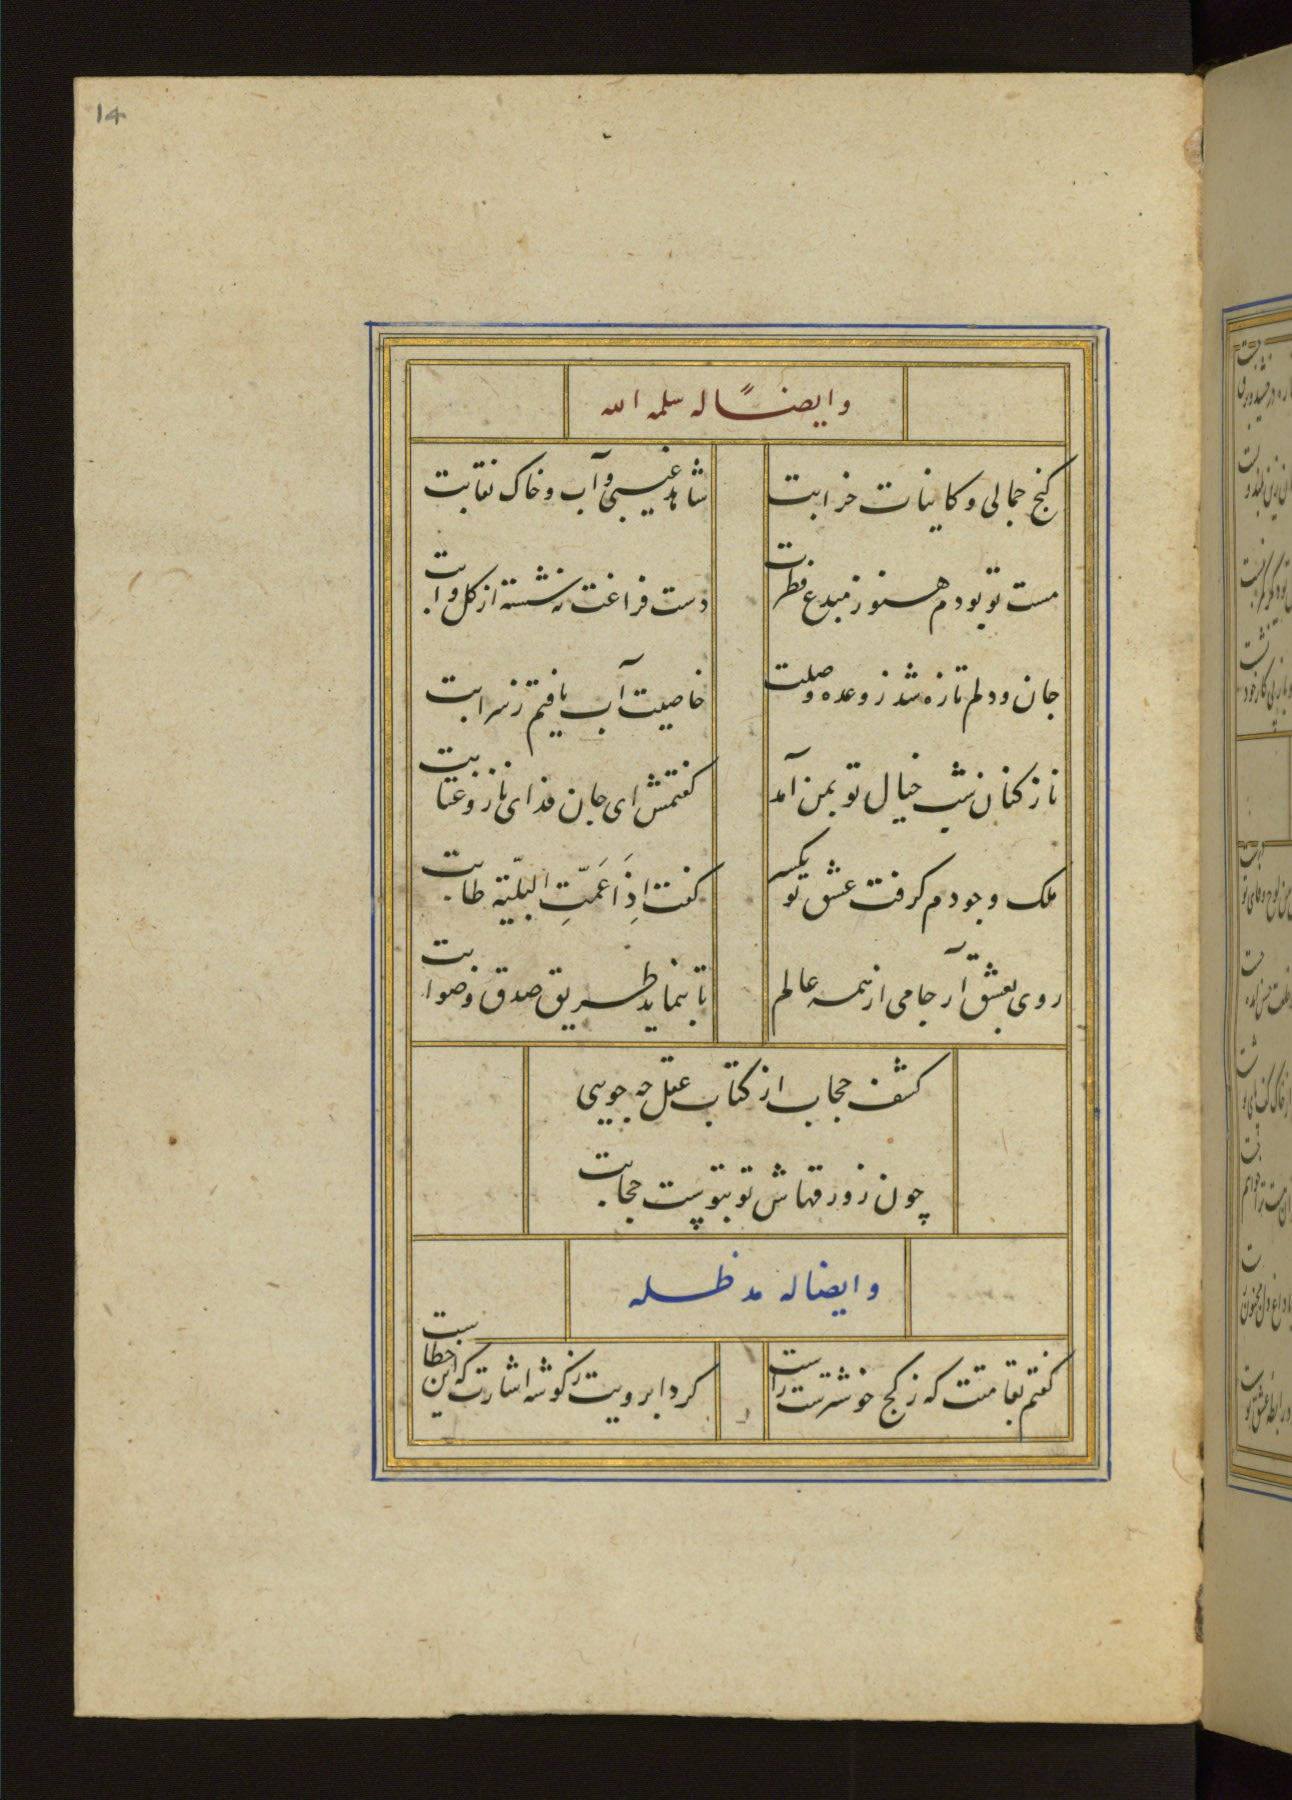 14
وایضاً له سلمه الله
کنج جمالی و کاینات خرابت
شاهد غیبی و آب و خاک نقابت
مست تو بودم هنوز ز مبدع فطرت
دست فراغت نه شسته از کل و ابت
جان و دلم تازه شد ز وعده وصلت
خاصیت آب یافتم ز سرابت
ناز کنان شب خیال تو بمن آمد
کفتمش ای جان فدای ناز و عتابت
ملک وجودم کرفت عشق تو یکسر
کفت اِذَا عَمَّتِ البلیّة طابت
روی بعشق آر جامی از همه عالم
تا بنماید طریق صدق و صوابت
کشف حجاب از کتاب عقل چه جویی
چون ز ورقهاش تو بتوست حجابت
وایضا له مد ظله
کفتم بقامتت که ز کج خوشترست راست
کرد ابرویت ز کوشه اشارت که این خطاست